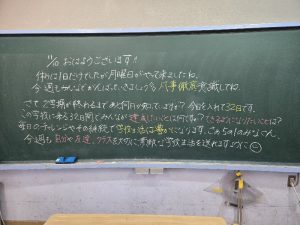 11/10 おはようございます!
休みは1日だけでしたが月曜日がやって来ましたね。
今週もみんなでがんばっていきましょう! 凡事徹底意識してね。
さて、2学期が終わるまであと何日か知っていますか? 今日を入れて32日です。
この学校に来る32日間でみんなが達成したいことは何ですか? できるようになりたいことは?
毎日のチャレンジやその継続で学校生活は豊かになります。この5の1のみなさん、
今週も自分や友達、クラスを大切に素敵な学校生活を送れますように